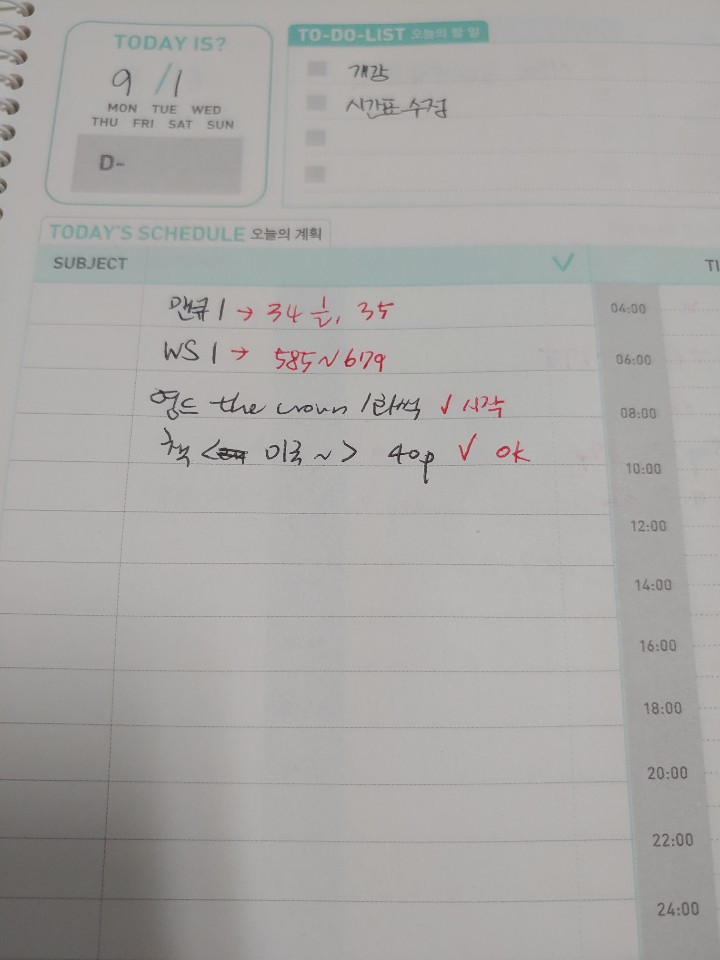 TODAY IS?
9/1
MON TUE WED
THU FRI SAT SUN
D-
TO-DO-LIST 오늘의 할 일
개강
시간표 수정
TODAY'S SCHEDULE 오늘의 계획
SUBJECT
맨큐 1 → 34 1/2, 35
WS 1 → 585~679
영드 the crown 1화씩 √ 시작
책 < 미국 ~> 40p √ ok
04:00
06:00
08:00
10:00
12:00
14:00
16:00
18:00
20:00
22:00
24:00